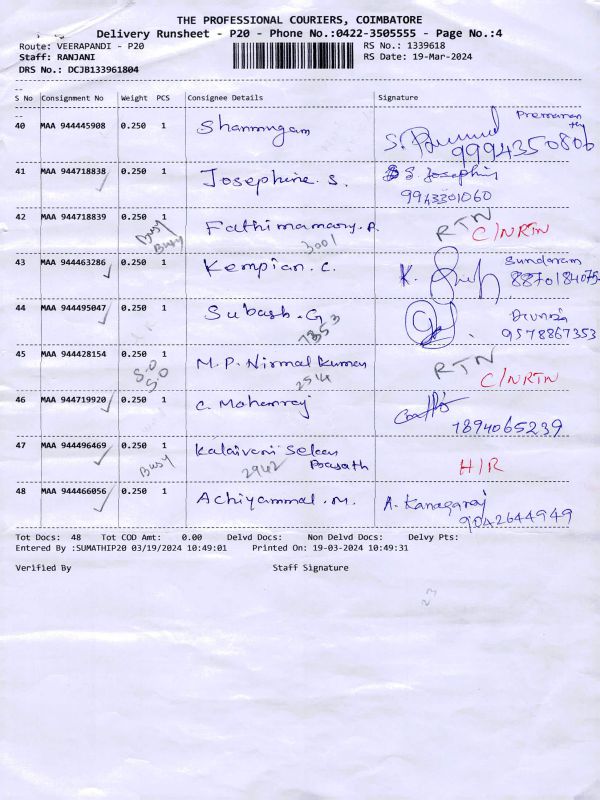 THE PROFESSIONAL COURIERS, COIMBATORE
Delivery Runsheet - P20 - Phone No.:0422-3505555 - Page No.:4
Route: VEERAPANDI - P20 RS No.: 1339618
Staff: RANJANI RS Date: 19-Mar-2024
DRS No.: DCJB133961804
S No Consignment No Weight PCS Consignee Details Signature
40 MAA 944445908 0.250 1 Shanmugam 9994350806
41 MAA 944718838 0.250 1 Josephine. S. S. Josephin
9943301060
42 MAA 944718839 0.250 1 Fathimamary. P. RTN C/NRTN
Busy
Busy 3001
43 MAA 944463286 0.250 1 Kempian. C. K. Sundaram
8870184075
44 MAA 944495047 0.250 1 Subash. G
7353 9578867353
45 MAA 944428154 0.250 1 M. P. Nirmal Kumar RTN
S.O
S.O 2544 C/NRTN
46 MAA 944719920 0.250 1 C. Mohanraj
7894065239
47 MAA 944496469 0.250 1 Kalaivani Selan H/R
Busy 2942 Prasath
48 MAA 944466056 0.250 1 Achiyammal. M. A. Kanagaraj
9042644949
Tot Docs: 48 Tot COD Amt: 0.00 Delvd Docs: Non Delvd Docs: Delvy Pts:
Entered By :SUMATHIP20 03/19/2024 10:49:01 Printed On: 19-03-2024 10:49:31
Verified By Staff Signature
23